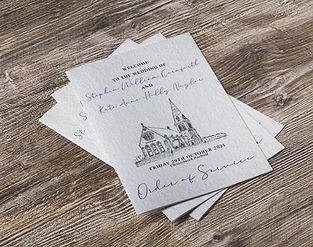 WELCOME
TO THE WEDDING OF
Stephen William Carnforth
AND
Kate Anne Holly Naylor
FRIDAY 29TH OCTOBER 2021
Order of Service